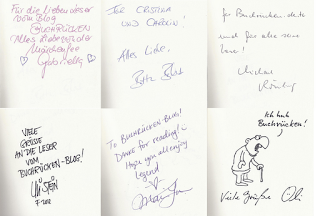 Für die Lieben Leser
vom Blog
BUCHRÜCKEN
Alles Liebe von der
Märchenfee
Gabriella
FÜR CRISTINA
UND CAROLIN!
Alles Liebe,
für Buchrücken.de.to
und für alle seine
Leser!
Michael
VIELE
GRÜSSE
AN DIE LESER
VOM
BUCHRÜCKEN-BLOG!
ULI STEIN
7-2012
To BUCHRÜCKEN BLOG!
Thanks for reading!
Hope you all enjoy
Legend
Ich hab
Buchrücken!
Viele Grüße